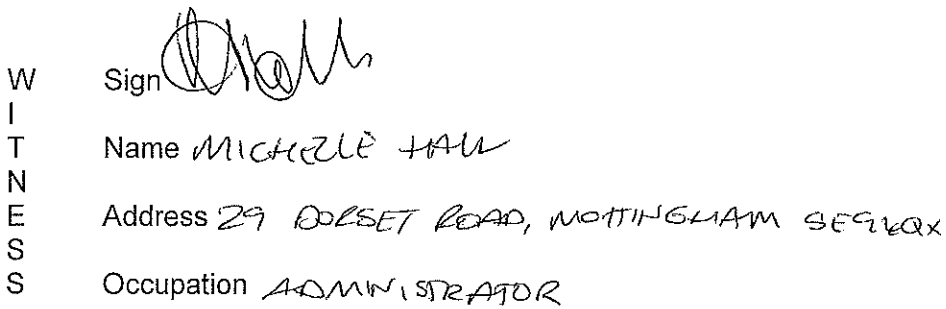 WITNESS
Sign
Name MICHELLE HALL
Address 29 DORSET ROAD, MOTTINGHAM SE9
Occupation ADMINISTRATOR